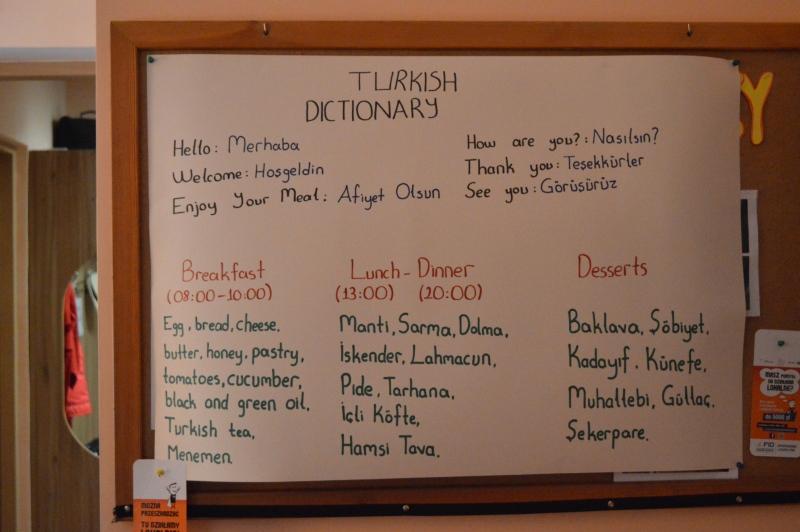 TURKISH
DICTIONARY
Hello: Merhaba
Welcome: Hosgeldin
Enjoy Your Meal: Afiyet Olsun
How are you?: Nasılsın?
Thank you: Teşekkürler
See you: Görüşürüz
Breakfast
(08:00-10:00)
Egg, bread, cheese,
butter, honey, pastry,
tomatoes, cucumber,
black and green oil,
Turkish tea,
Menemen
Lunch-Dinner
(13:00) (20:00)
Manti, Sarma, Dolma,
İskender, Lahmacun,
Pide, Tarhana,
İçli Köfte,
Hamsi Tava.
Desserts
Baklava, Şöbiyet,
Kadayıf, Künefe,
Muhallebi, Güllaç,
Şekerpare.
Y
MASZ POMYSŁ
NA DZIAŁANIE
LOKALNE?
do 5000 zł
FIO
MOŻNA
PRZESZKADZAĆ
TU DZIAŁAMY